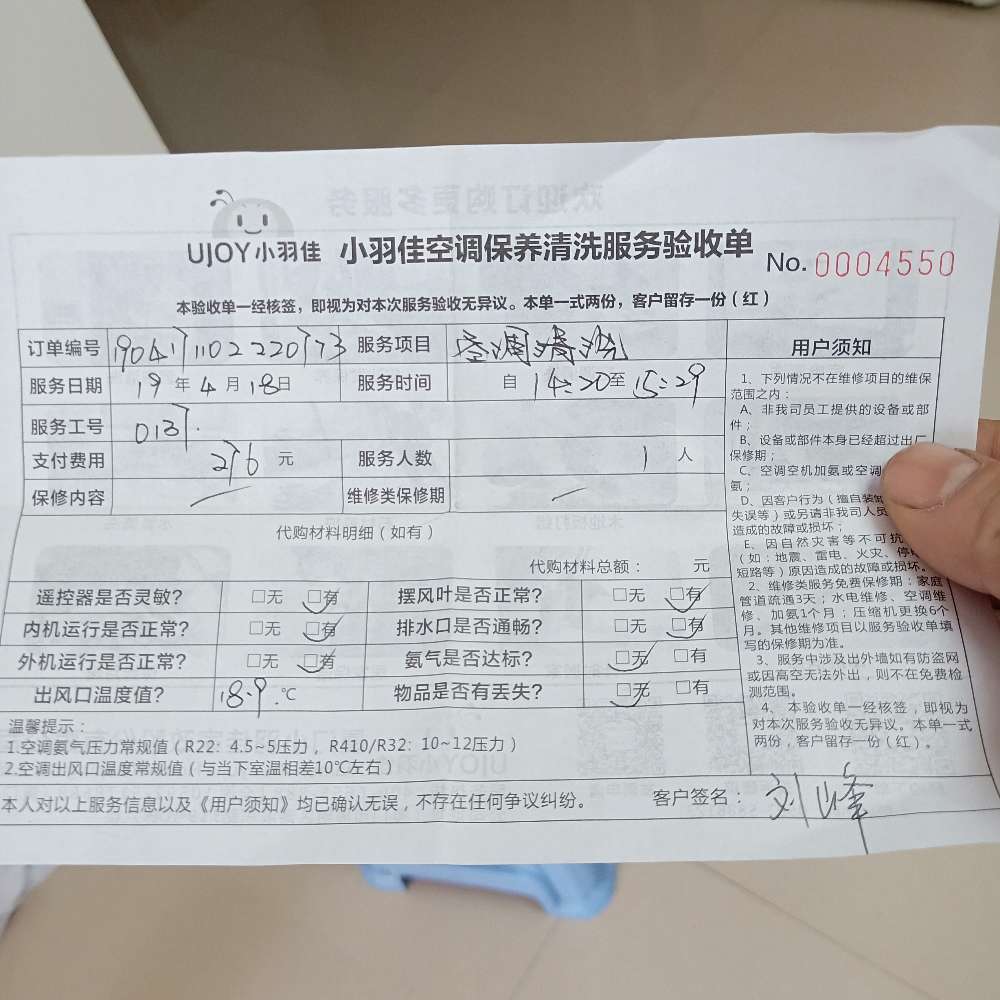 UJOY小羽佳 小羽佳空调保养清洗服务验收单 No. 0004550
本验收单一经核签，即视为对本次服务验收无异议。本单一式两份，客户留存一份（红）
订单编号 服务项目 空调清洗
服务日期 19 年 4 月 18 日 服务时间 自 14:20 至 15:29
服务工号 0137.
支付费用 276 元 服务人数 1 人
保修内容 维修类保修期
代购材料明细（如有）
代购材料总额： 元
遥控器是否灵敏? □无 □有 摆风叶是否正常? □无 □有
内机运行是否正常? □无 □有 排水口是否通畅? □无 □有
外机运行是否正常? □无 □有 氨气是否达标? □无 □有
出风口温度值? 18.9.℃ 物品是否有丢失? □无 □有
温馨提示：
1.空调氨气压力常规值（R22：4.5~5压力，R410/R32：10~12压力）
2.空调出风口温度常规值（与当下室温相差10℃左右）
本人对以上服务信息以及《用户须知》均已确认无误，不存在任何争议纠纷。 客户签名：刘峰
用户须知
1、下列情况不在维修项目的维保
范围之内：
A、非我司员工提供的设备或部
件；
B、设备或部件本身已经超过出厂
保修期；
C、空调空机加氨或空调
氨；
D、因客户行为（擅自装卸
失误等）或另请非我司人员
造成的故障或损坏；
E、因自然灾害等不可抗
（如：地震、雷电、火灾、停
短路等）原因造成的故障或损坏。
2、维修类服务免费保修期：家庭
管道疏通3天；水电维修、空调维
修、加氨1个月；压缩机更换6个
月。其他维修项目以服务验收单填
写的保修期为准。
3、服务中涉及出外墙如有防盗网
或因高空无法外出，则不在免费检
测范围。
4、本验收单一经核签，即视为
对本次服务验收无异议。本单一式
两份，客户留存一份（红）。